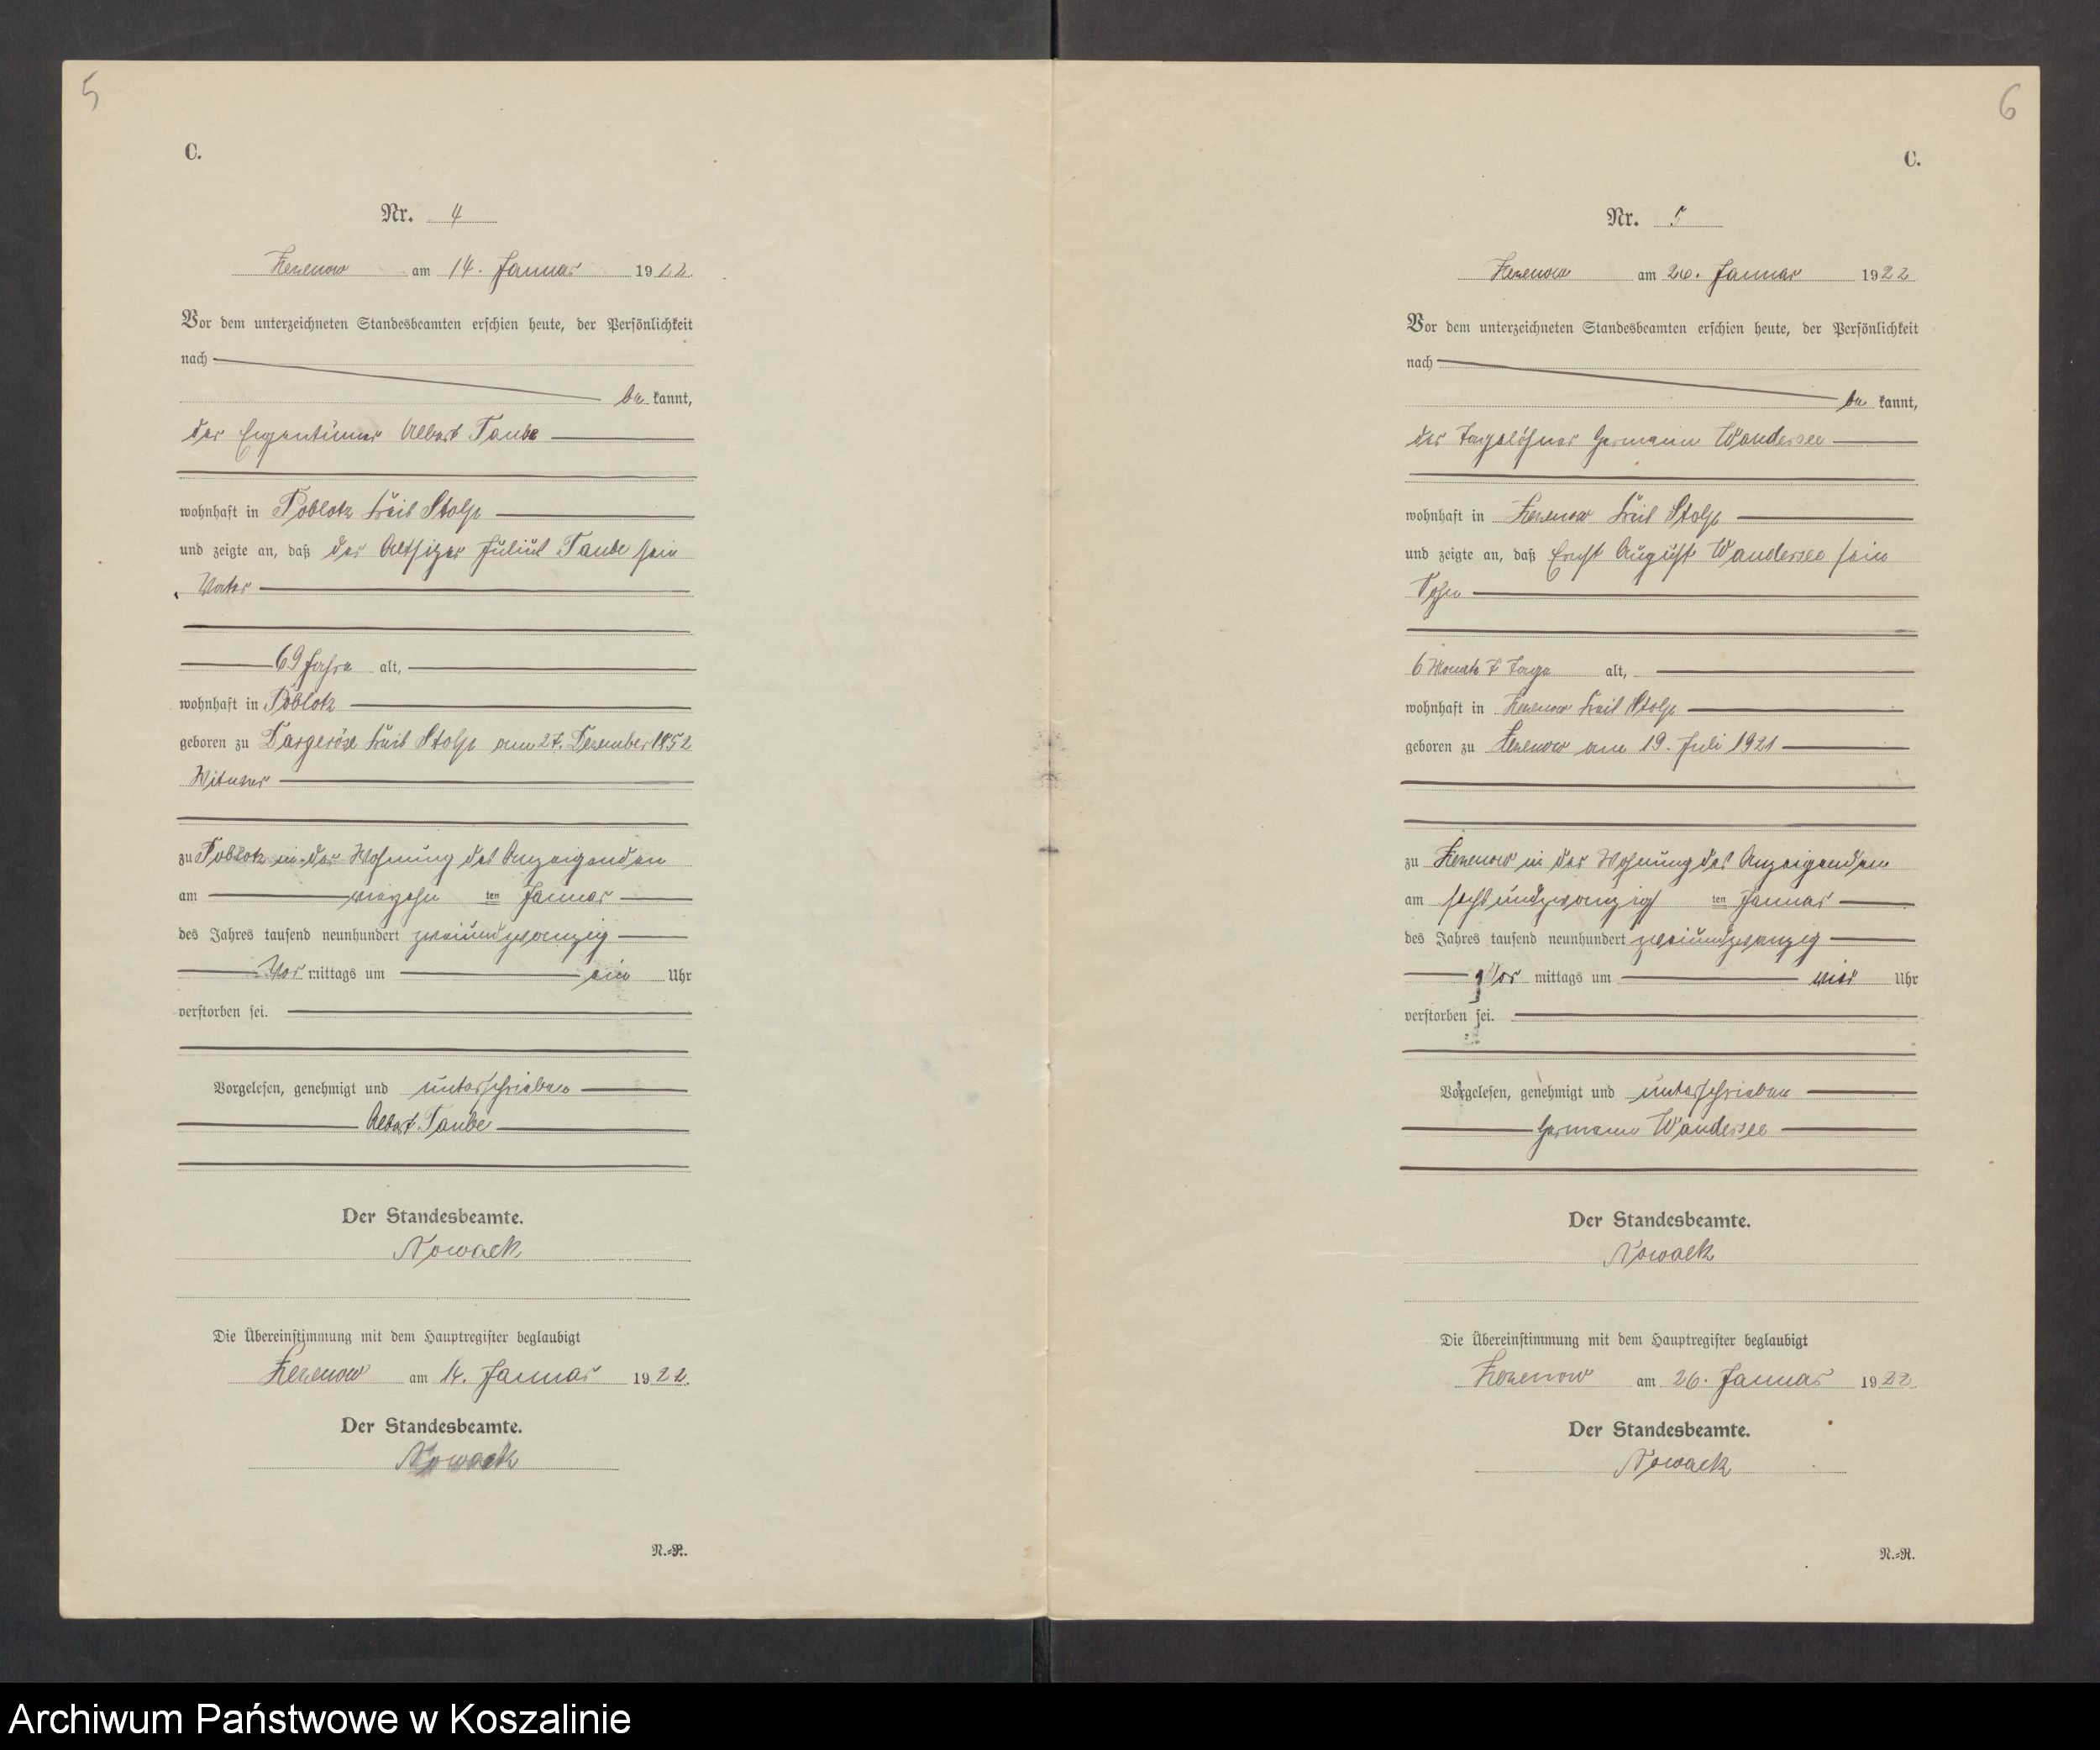 5
C.
Nr. 4
Zezenow am 14. Januar 1922.
Vor dem unterzeichneten Standesbeamten erschien heute, der Persönlichkeit
nach
be kannt,
der Eigentümer Albert Taube
wohnhaft in Poblotz Kreis Stolp
und zeigte an, daß der Altsitzer Julius Taube sein
Vater
69 Jahre alt,
wohnhaft in Poblotz
geboren zu Dargeröse Kreis Stolp am 27. Dezember 1852
Witwer
zu Poblotz in der Wohnung des Anzeigenden
am vierzehn ten Januar
des Jahres tausend neunhundert zweiundzwanzig
Vor mittags um ein Uhr
verstorben sei.
Vorgelesen, genehmigt und unterschrieben
Albert Taube
Der Standesbeamte.
Nowack
Die Übereinstimmung mit dem Hauptregister beglaubigt
Zezenow am 14. Januar 1922.
Der Standesbeamte.
Nowack
N.=R.
6
C.
Nr. 5
Zezenow am 26. Januar 1922
Vor dem unterzeichneten Standesbeamten erschien heute, der Persönlichkeit
nach
be kannt,
der Tagelöhner Hermann Wandersee
wohnhaft in Zezenow Kreis Stolp
und zeigte an, daß Ernst August Wandersee sein
Sohn
6 Monate 7 Tage alt,
wohnhaft in Zezenow Kreis Stolp
geboren zu Zezenow am 19. Juli 1921
zu Zezenow in der Wohnung des Anzeigenden
am sechsundzwanzigs ten Januar
des Jahres tausend neunhundert zweiundzwanzig
Vor mittags um vier Uhr
verstorben sei.
Vorgelesen, genehmigt und unterschrieben
Hermann Wandersee
Der Standesbeamte.
Nowack
Die Übereinstimmung mit dem Hauptregister beglaubigt
Zezenow am 26. Januar 1922.
Der Standesbeamte.
Nowack
N.=R.
Archiwum Państwowe w Koszalinie